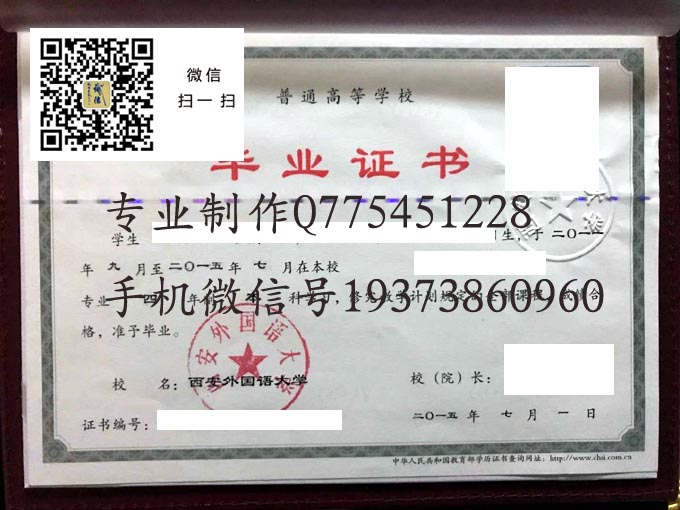 微信
扫一扫
普通高等学校
毕业证书
专业制作Q775451228
学生
生,于二〇一一
年九月至二〇一五年七月在本校
手机微信号19373860960
专业四年制本科学习,修完教学计划规定的全部课程,成绩合
格,准予毕业。
西安外国语大学
校名:西安外国语大学
校(院)长:
二〇一五年七月一日
证书编号:
中华人民共和国教育部学历证书查询网址:http://www.chsi.com.cn